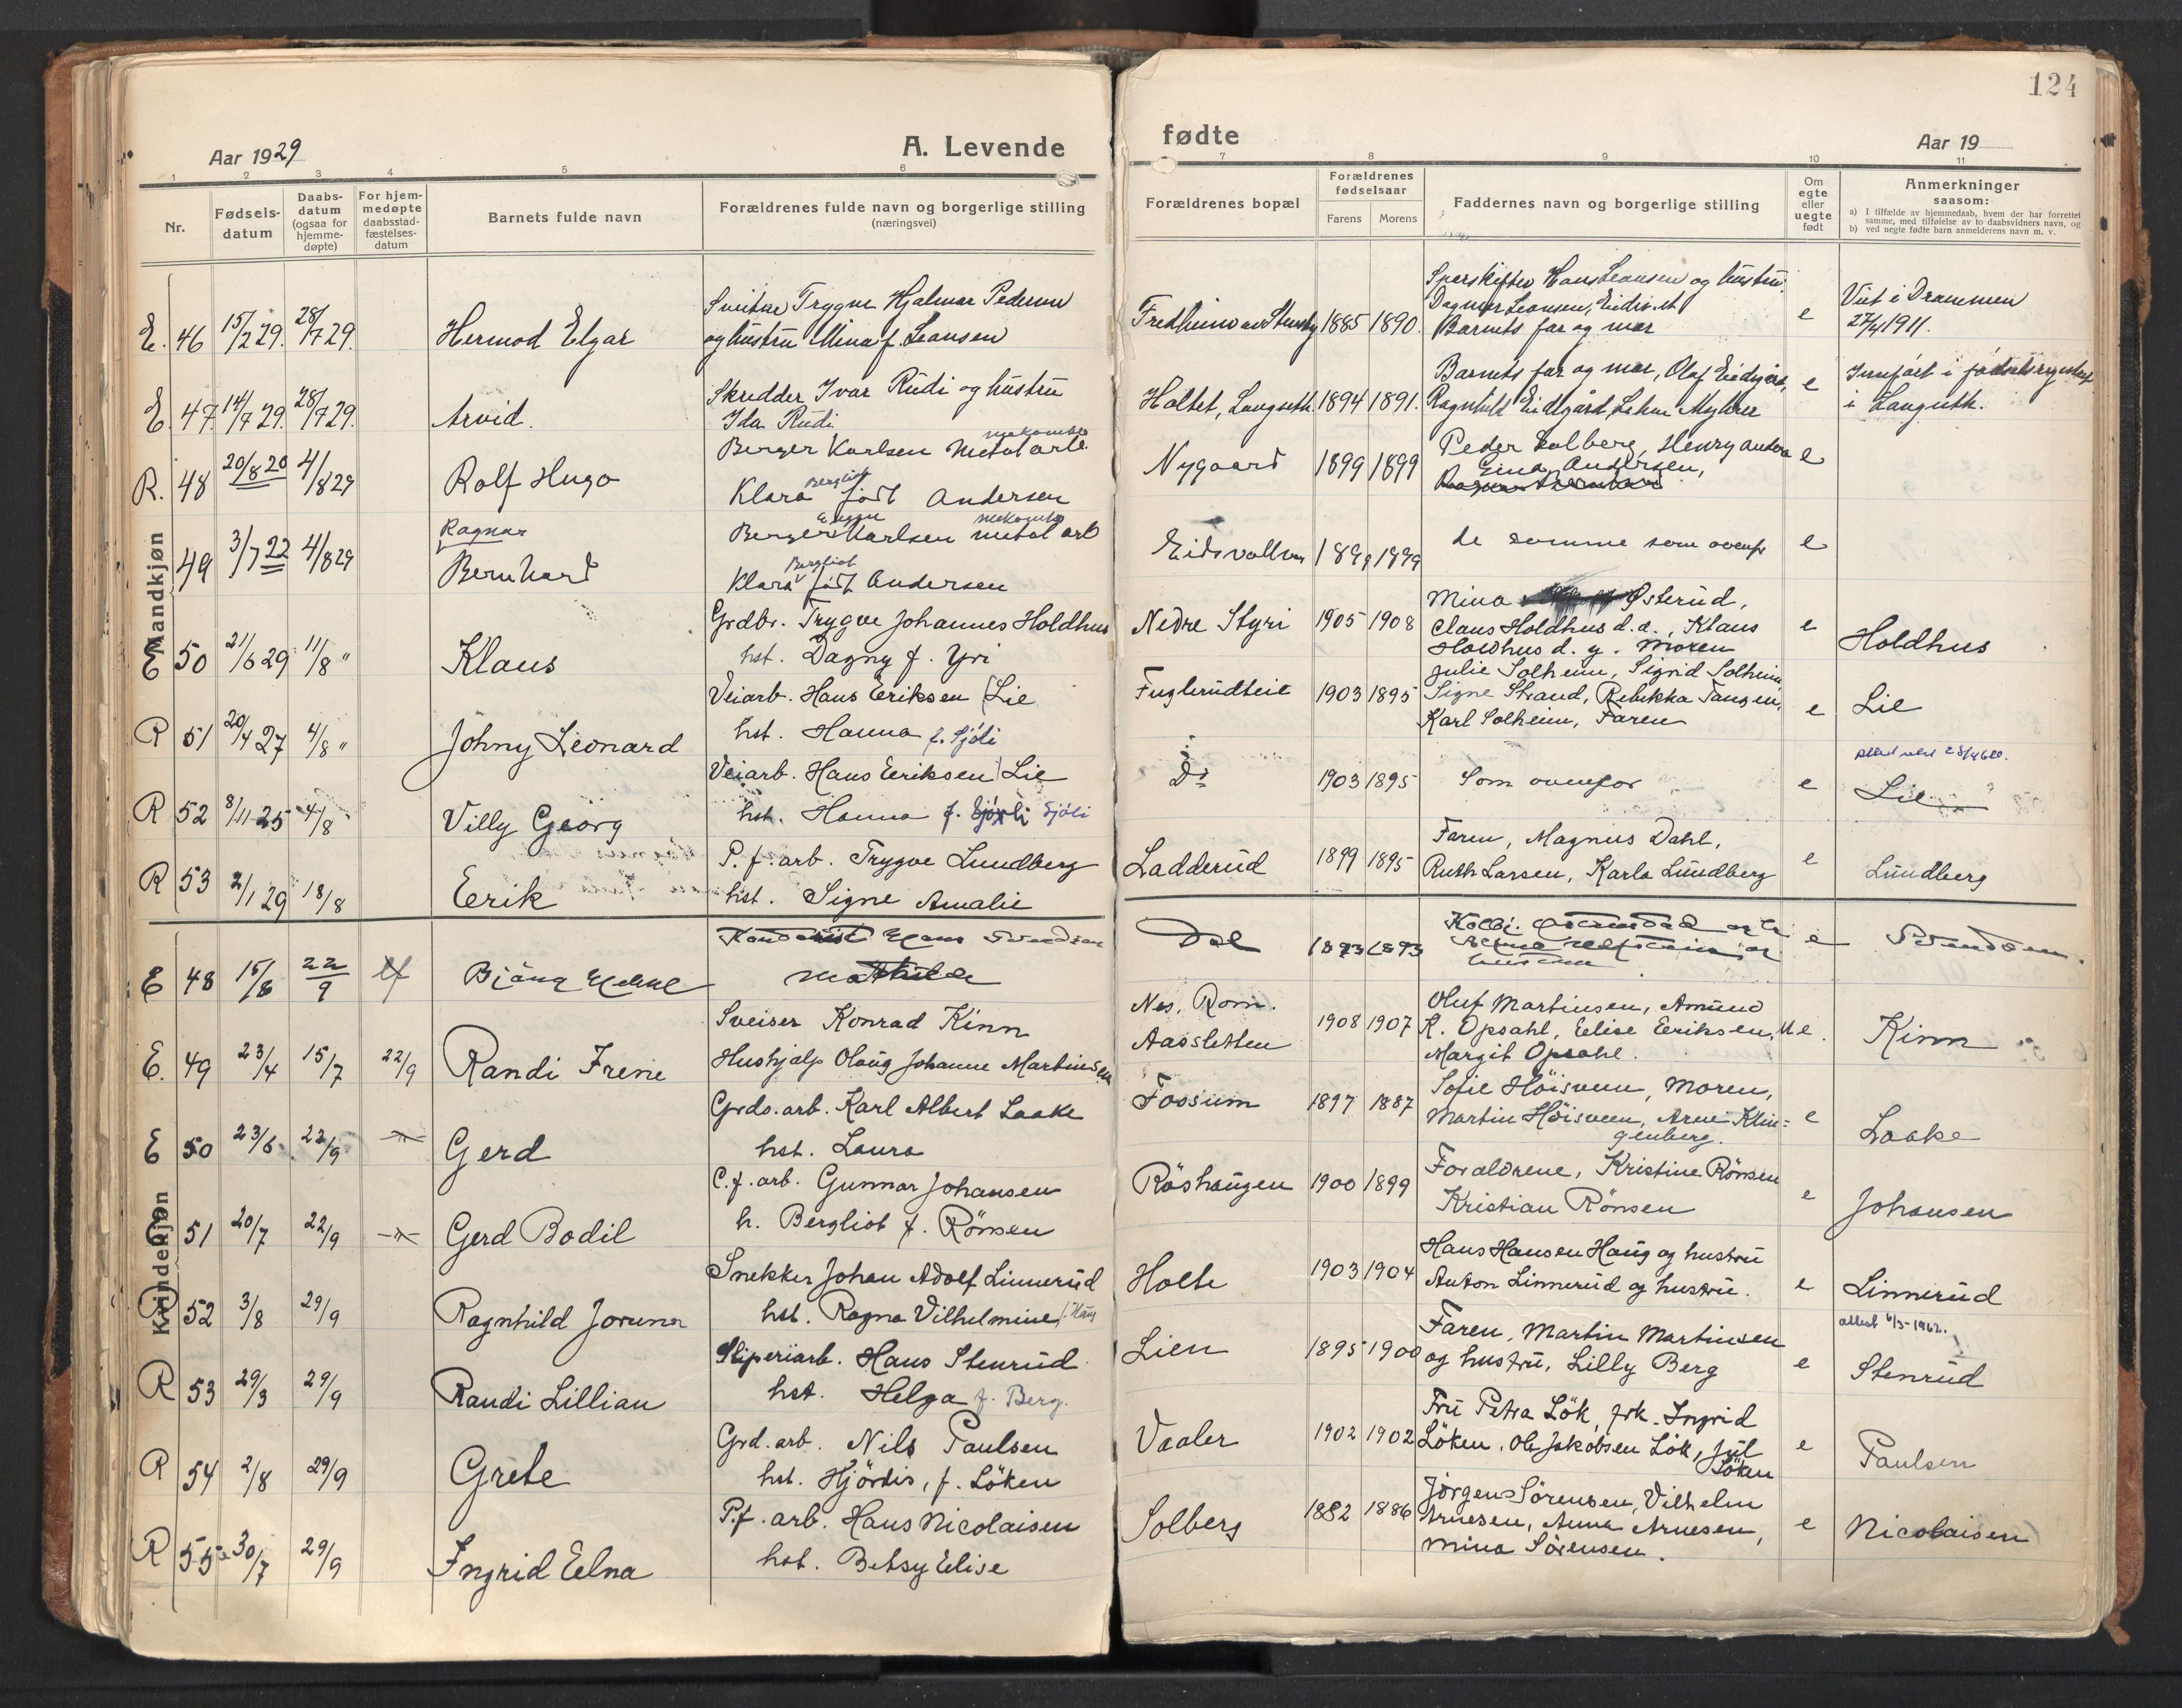 124
Aar 1929
A. Levende
fødte
Aar 19
1 2 3 4 5 6 7 8 9 10 11
Nr.
Fødsels-
datum
Daabs-
datum
(ogsaa for
hjemme-
døpte)
For hjem-
medøpte
daabsstad-
fæstelses-
datum
Barnets fulde navn
Forældrenes fulde navn og borgerlige stilling
(næringsvei)
Forældrenes bopæl
Forældrenes
fødselsaar
Farens Morens
Faddernes navn og borgerlige stilling
Om
egte
eller
uegte
født
Anmerkninger
saasom:
a) I tilfælde av hjemmedaab, hvem der har forrettet
samme, med tilføielse av to daabsvidners navn, og
b) ved uegte fødte barn anmelderens navn m. v.
Mandkjøn
E. 46 15/2 29. 28/7 29. Hermod Elgar
Trygve Hjalmar Pedersen
og hustru Mina f. Leansen
1885 1890.
Hans Leansen og hustru
Dagmar Leansen,
Barnets far og mor
e
Viet i Drammen
27/4 1911.
E. 47 14/7 29. 28/7 29. Arvid.
Skredder Ivar Rudi og hustru
Ida Rudi
Holtet, Langseth. 1894 1891.
Barnets far og mor, Olaf Eidsgård,
Ragnhild Eidsgård,
e
Innført i fødselsregisteret
i Langseth.
R. 48 20/8 20 4/8 29 Rolf Hugo
Berger Karlsen metal arb.
Klara Bergliot født Andersen
Nygaard 1899 1899
Peder Solberg, Henry
Gina Andersen,
e
49 3/7 22 4/8 29 Ragnar
Bernhard
Berger Karlsen metal arb
Klara Bergliot født Andersen
1899 1899
de samme som ovenfr
e
E 50 21/6 29 11/8 " Klaus
Grdbr. Trygve Johannes Holdhus
hst. Dagny f. Yri
Nedre Styri 1905 1908
Mina Østerud,
Claus Holdhus d. æ., Klaus
Holdhus d. y. Moren
e
Holdhus
R 51 20/4 27 4/8 " Johny Leonard
Veiarb. Hans Eriksen Lie
hst. Hanna f. Sjöli
Fuglerudteie 1903 1895
Julie Solheim, Sigrid Solheim
Signe Strand, Rebekka Tangen,
Karl Solheim, Faren
e
Lie
R 52 8/11 25 4/8 Villy Georg
Veiarb. Hans Eriksen Lie
hst. Hanna f. Sjöli
Do 1903 1895
Som ovenfor
e
Lie
R 53 2/1 29 18/8 Erik
P. f. arb. Trygve Lundberg
hst. Signe Amalie
Ladderud 1899 1895
Faren, Magnus Dahl,
Ruth Larsen, Karla Lundberg
e
Lundberg
Kvindekjøn
E 48 15/6 22/9
Mathilde
Dal 1893 1893
e
E. 49 23/4 15/7 22/9 Randi Irene
Sveiser Konrad Kinn
Hushjälp Olaug Johanne Martinsen
Nes, Rom.
Aasletten 1908 1907
Oluf Martinsen, Amund
K. Opsahl, Elise Eriksen,
Margit Opsahl.
u e.
Kinn
E 50 23/6 22/9 Gerd
Grds. arb. Karl Albert Laake
hst. Laura
Fossum 1897 1887
Sofie Höisveen, Moren,
Martin Höisveen, Arne Klin=
genberg.
e
Laake
51 20/7 22/9 Gerd Bodil
C. f. arb. Gunnar Johansen
h. Bergliot f. Rönsen
Röshaugen 1900 1899
Foraldrene, Kristine Rönsen
Kristian Rönsen
e
Johansen
R 52 3/8 29/9 Ragnhild Jorunn
Snekker Johan Adolf Linnerud
hst. Ragna Vilhelmine f. Haug
Holte 1903 1904
Hans Hansen Haug og hustru
Anton Linnerud og hustru.
e
Linnerud
R 53 29/3 29/9 Randi Lillian
Sliperiarb. Hans Stenrud
hst. Helga f. Berg.
Lien 1895 1900
Faren, Martin Martinsen
og hustru, Lilly Berg
e
attest 6/3-1962.
Stenrud
R 54 2/8 29/9 Grete
Grd. arb. Nils Paulsen
hst. Hjördis, f. Löken
Vaaler 1902 1902
Fru Petra Lök, frk. Ingrid
Löken, Ole Jakobsen Lök, Jul
Löken
e
Paulsen
R 55 30/7 29/9 Ingrid Elna
P.f. arb. Hans Nicolaisen
hst. Betsy Elise
Solberg 1882 1886
Jörgen Sörensen, Vilhelm
Arnesen, Anna Arnesen,
Mina Sörensen.
e
Nicolaisen